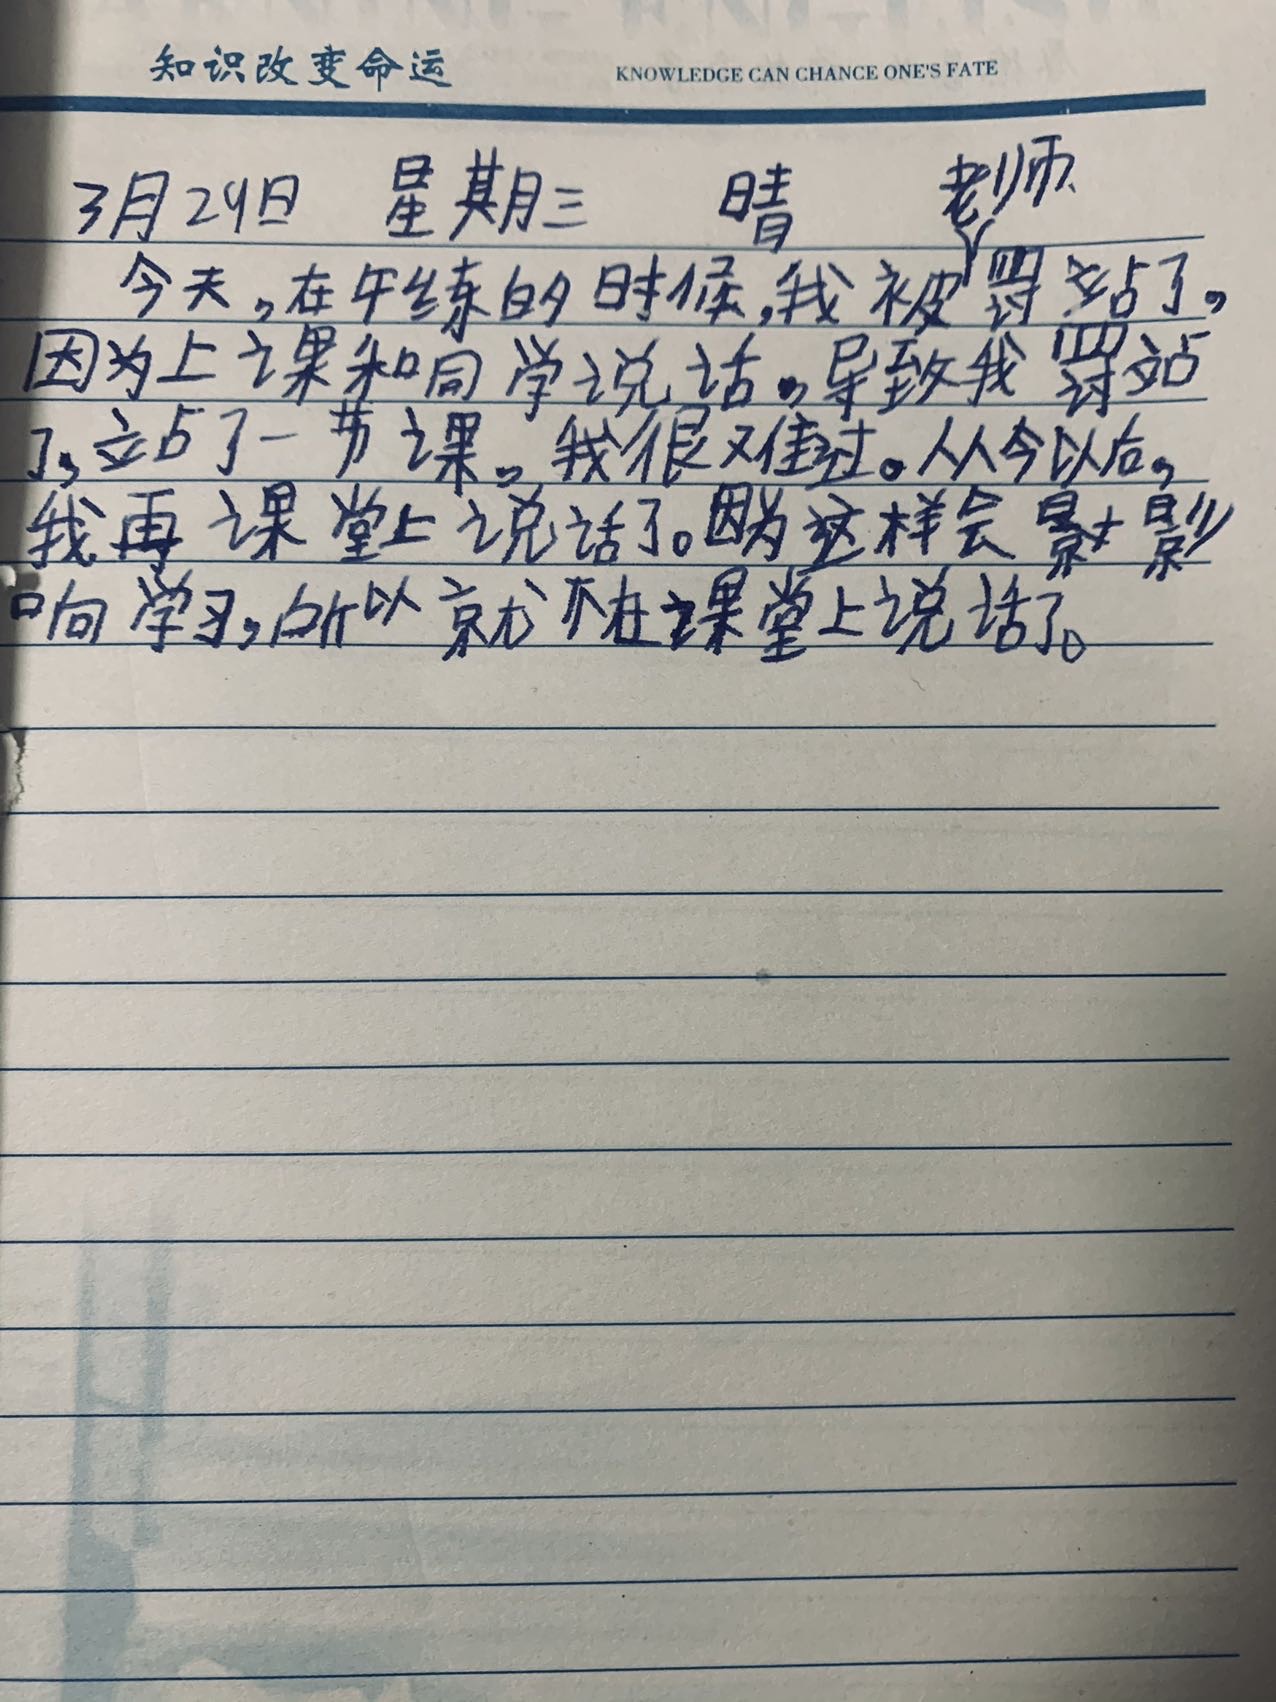 知识改变命运 KNOWLEDGE CAN CHANCE ONE'S FATE
3月29日 星期三 晴
今天,在午练的时候,我被老师罚站了,
因为上课和同学说话,导致我罚站
了,站了一节课,我很难过。从今以后,
我再课堂上说话了。因为这样会影
响学习,所以就不在课堂上说话了。